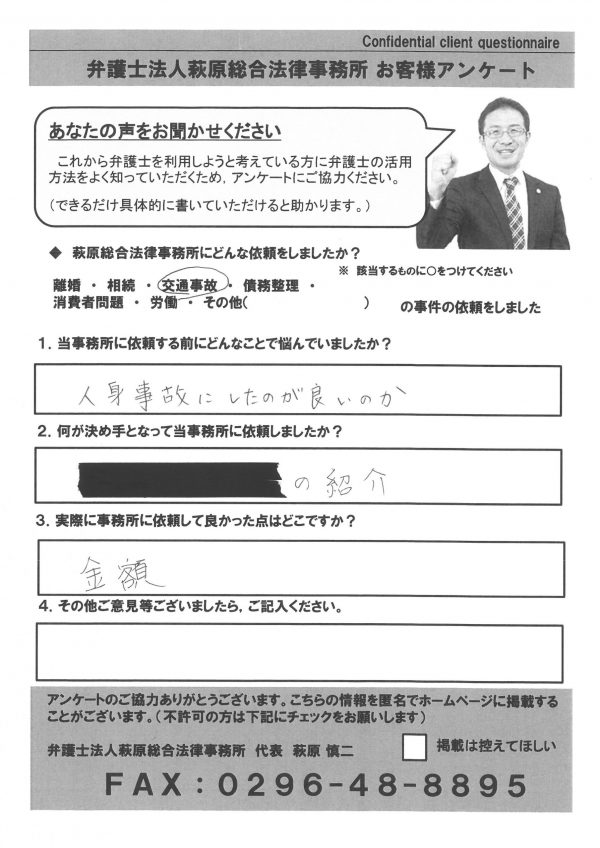 Confidential client questionnaire
弁護士法人萩原総合法律事務所 お客様アンケート
あなたの声をお聞かせください
これから弁護士を利用しようと考えている方に弁護士の活用
方法をよく知っていただくため,アンケートにご協力ください。
(できるだけ具体的に書いていただけると助かります。)
◆ 萩原総合法律事務所にどんな依頼をしましたか?
※ 該当するものに○をつけてください
離婚 ・ 相続 ・ 交通事故 ・ 債務整理 ・
消費者問題 ・ 労働 ・ その他( ) の事件の依頼をしました
1.当事務所に依頼する前にどんなことで悩んでいましたか?
人身事故にしたのが良いのか
2.何が決め手となって当事務所に依頼しましたか?
の紹介
3.実際に事務所に依頼して良かった点はどこですか?
金額
4.その他ご意見等ございましたら,ご記入ください。
アンケートのご協力ありがとうございます。こちらの情報を匿名でホームページに掲載する
ことがございます。(不許可の方は下記にチェックをお願いします)
弁護士法人萩原総合法律事務所 代表 萩原 慎二 掲載は控えてほしい
FAX:0296-48-8895